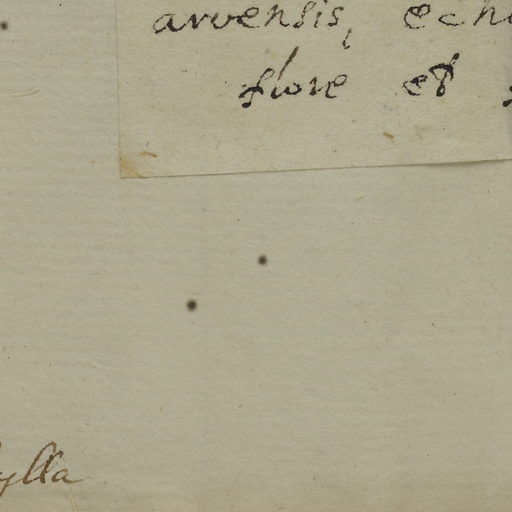 arvensis, ech
flore et
ylla